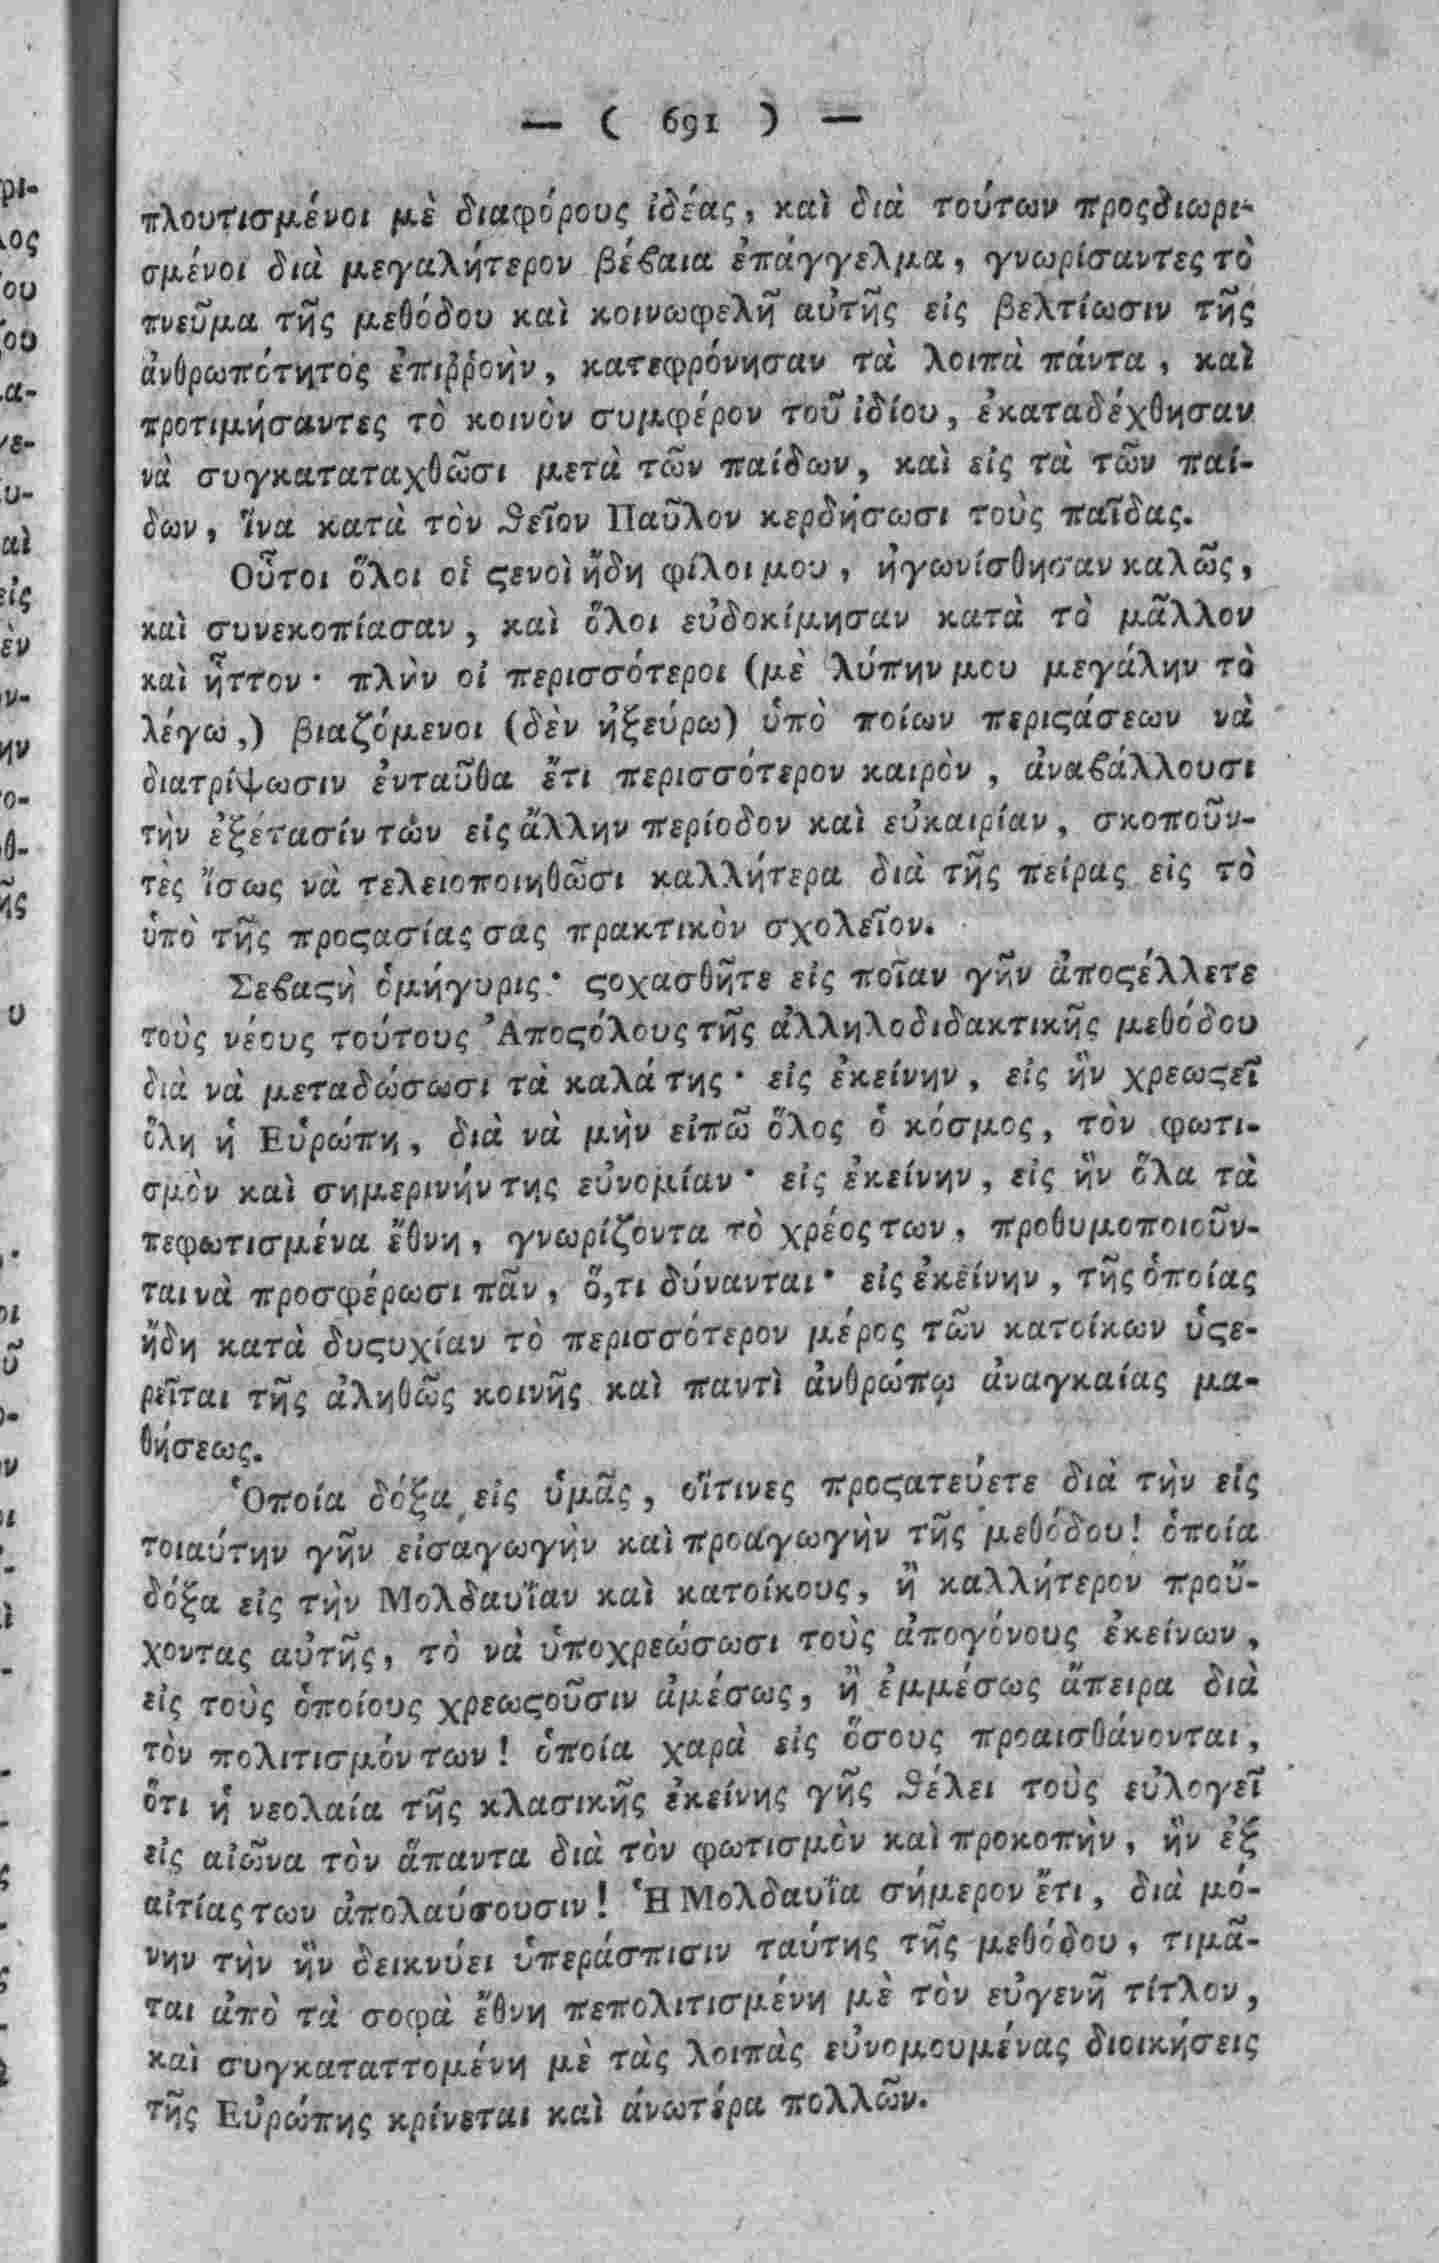 — ( 691 ) —
πλουτισμένοι μὲ διαφόρους ἰδέας, καὶ διὰ τούτων προςδιωρι-
σμένοι διὰ μεγαλήτερον βέϐαια ἐπάγγελμα, γνωρίσαντες τὸ
πνεῦμα τῆς μεθόδου καὶ κοινωφελῆ αὐτῆς εἰς βελτίωσιν τῆς
ἀνθρωπότητος ἐπιῤῥοὴν, κατεφρόνησαν τὰ λοιπὰ πάντα, καὶ
προτιμήσαντες τὸ κοινὸν συμφέρον τοῦ ἰδίου, ἐκαταδέχθησαν
νὰ συγκαταταχθῶσι μετὰ τῶν παίδων, καὶ εἰς τὰ τῶν παί-
δων, ἵνα κατὰ τὸν ϑεῖον Παῦλον κερδήσωσι τοὺς παῖδας.
Οὗτοι ὅλοι οἱ ϛενοὶ ἤδη φίλοι μου, ἠγωνίσθησαν καλῶς,
καὶ συνεκοπίασαν, καὶ ὅλοι εὐδοκίμησαν κατὰ τὸ μᾶλλον
καὶ ἧττον· πλὴν οἱ περισσότεροι (μὲ λύπην μου μεγάλην τὸ
λέγω,) βιαζόμενοι (δὲν ἠξεύρω) ὑπὸ ποίων περιϛάσεων νὰ
διατρίψωσιν ἐνταῦθα ἔτι περισσότερον καιρὸν, ἀναϐάλλουσι
τὴν ἐξέτασίν των εἰς ἄλλην περίοδον καὶ εὐκαιρίαν, σκοποῦν-
τὲς ἴσως νὰ τελειοποιηθῶσι καλλήτερα διὰ τῆς πείρας εἰς τὸ
ὑπὸ τῆς προϛασίας σας πρακτικὸν σχολεῖον.
Σεϐαϛὴ ὁμήγυρις· ϛοχασθῆτε εἰς ποῖαν γῆν ἀποϛέλλετε
τοὺς νέους τούτους Ἀποϛόλους τῆς ἀλληλοδιδακτικῆς μεθόδου
διὰ νὰ μεταδώσωσι τὰ καλά της· εἰς ἐκείνην, εἰς ἣν χρεωϛεῖ
ὅλη ἡ Εὐρώπη, διὰ νὰ μὴν εἰπῶ ὅλος ὁ κόσμος, τὸν φωτι-
σμὸν καὶ σημερινήν της εὐνομίαν· εἰς ἐκείνην, εἰς ἣν ὅλα τὰ
πεφωτισμένα ἔθνη, γνωρίζοντα τὸ χρέος των, προθυμοποιοῦν-
ται νὰ προσφέρωσι πᾶν, ὅ,τι δύνανται· εἰς ἐκείνην, τῆς ὁποίας
ἤδη κατὰ δυϛυχίαν τὸ περισσότερον μέρος τῶν κατοίκων ὑϛε-
ρεῖται τῆς ἀληθῶς κοινῆς καὶ παντὶ ἀνθρώπῳ ἀναγκαίας μα-
θήσεως.
Ὁποία δόξα εἰς ὑμᾶς, οἵτινες προϛατεύετε διὰ τὴν εἰς
τοιαύτην γῆν εἰσαγωγὴν καὶ προαγωγὴν τῆς μεθόδου! ὁποία
δόξα εἰς τὴν Μολδαυΐαν καὶ κατοίκους, ἢ καλλήτερον προὔ-
χοντας αὐτῆς, τὸ νὰ ὑποχρεώσωσι τοὺς ἀπογόνους ἐκείνων,
εἰς τοὺς ὁποίους χρεωϛοῦσιν ἀμέσως, ἢ ἐμμέσως ἄπειρα διὰ
τὸν πολιτισμόν των! ὁποία χαρὰ εἰς ὅσους προαισθάνονται,
ὅτι ἡ νεολαία τῆς κλασικῆς ἐκείνης γῆς ϑέλει τοὺς εὐλογεῖ
εἰς αἰῶνα τὸν ἅπαντα διὰ τὸν φωτισμὸν καὶ προκοπὴν, ἣν ἐξ
αἰτίας των ἀπολαύσουσιν! Ἡ Μολδαυΐα σήμερον ἔτι, διὰ μό-
νην τὴν ἣν δεικνύει ὑπεράσπισιν ταύτης τῆς μεθόδου, τιμᾶ-
ται ἀπὸ τὰ σοφὰ ἔθνη πεπολιτισμένη μὲ τὸν εὐγενῆ τίτλον,
καὶ συγκαταττομένη μὲ τὰς λοιπὰς εὐνομουμένας διοικήσεις
τῆς Εὐρώπης κρίνεται καὶ ἀνωτέρα πολλῶν.